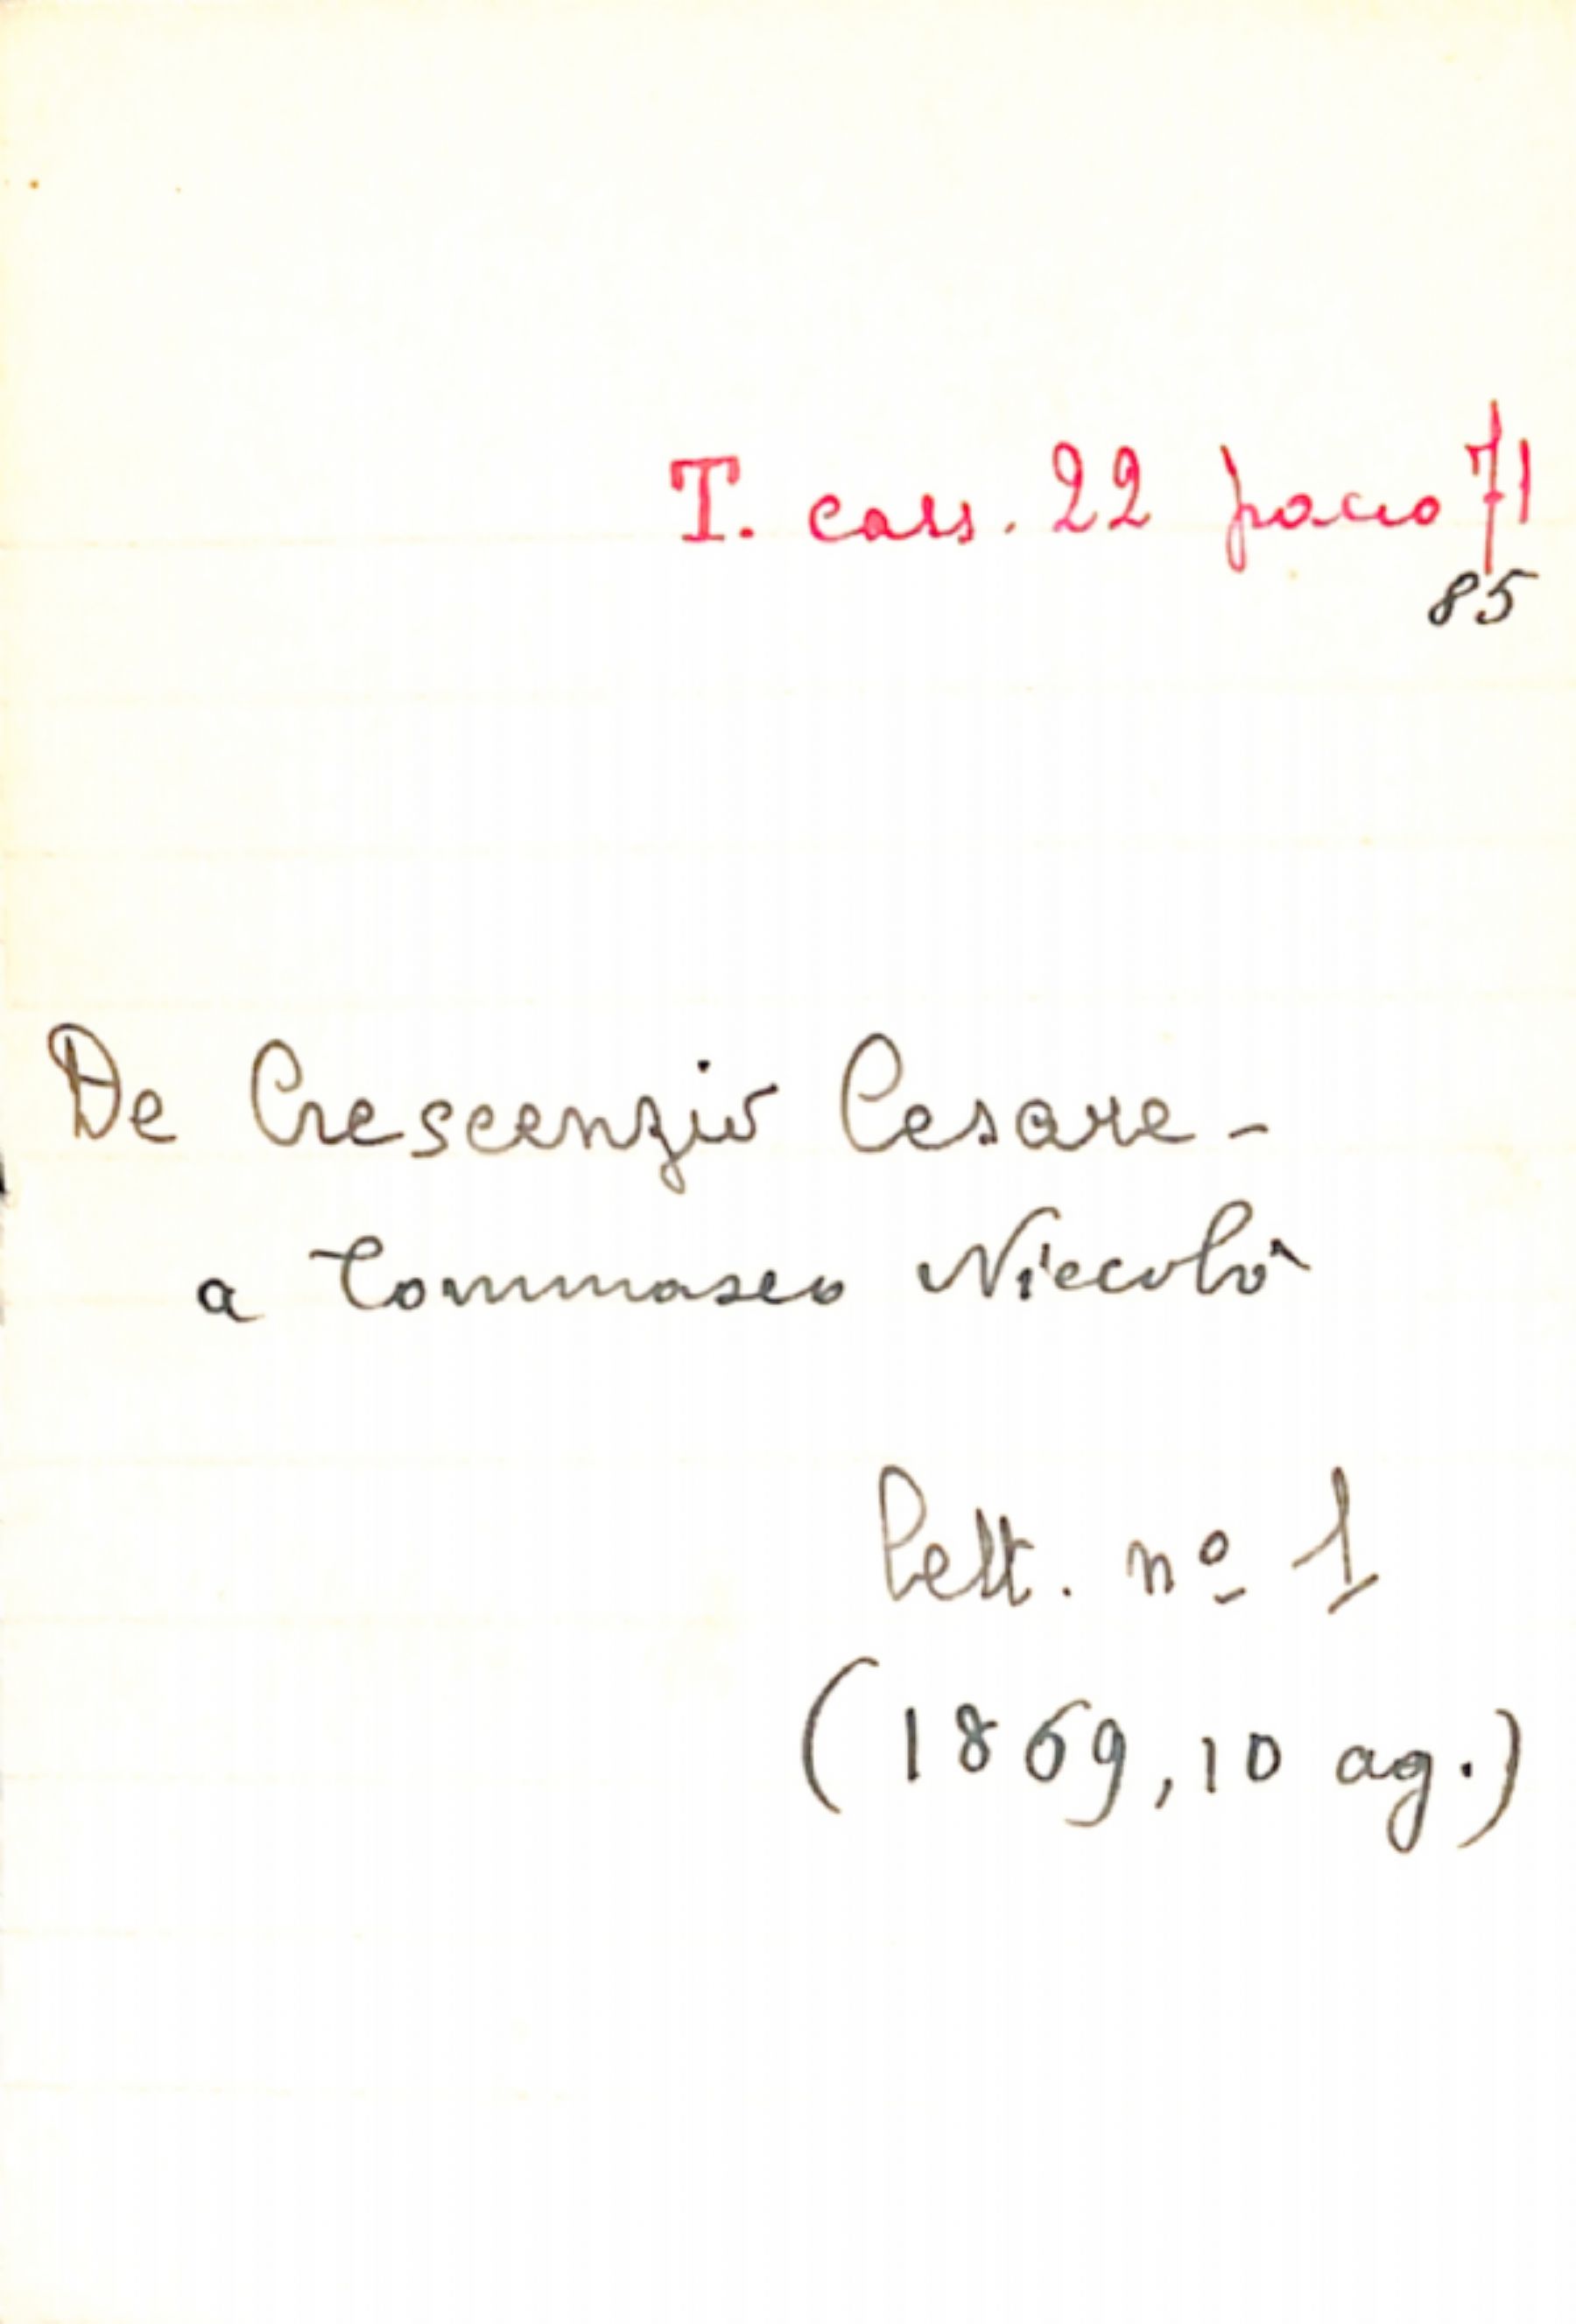 T. cass. 22 pacco 71
85
De Crescenzio Cesare -
a Tommaseo Niccolò
Lett. nº 1
(1869, 10 ag.)